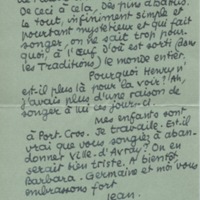 De ceci à cela, des pins d'abord.
le tout, infiniment simple et
pourtant mystérieux et qui fait
songer, on ne sait trop pour-
quoi, à l'Œuf d'où est sorti (dans
les Traditions) le monde entier.
Pourquoi Henry n'
est-il plus là pour la voir? Ah,
j'aurais plus d'une raison de
songer à lui ces jours-ci.
Mes enfants sont
à Port-Cros. Je travaille. Est-il
vrai que vous songiez à aban-
donner Ville-d'Avray? On en
serait bien triste. A bientôt
Barbara. Germaine et moi vous
embrassons fort
Jean.